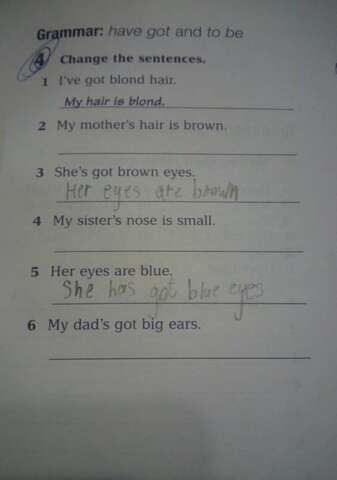 Grammar: have got and to be
4 Change the sentences.
1 I've got blond hair.
My hair is blond.
2 My mother's hair is brown.
3 She's got brown eyes.
Her eyes are brown
4 My sister's nose is small.
5 Her eyes are blue.
She has got blue eyes
6 My dad's got big ears.